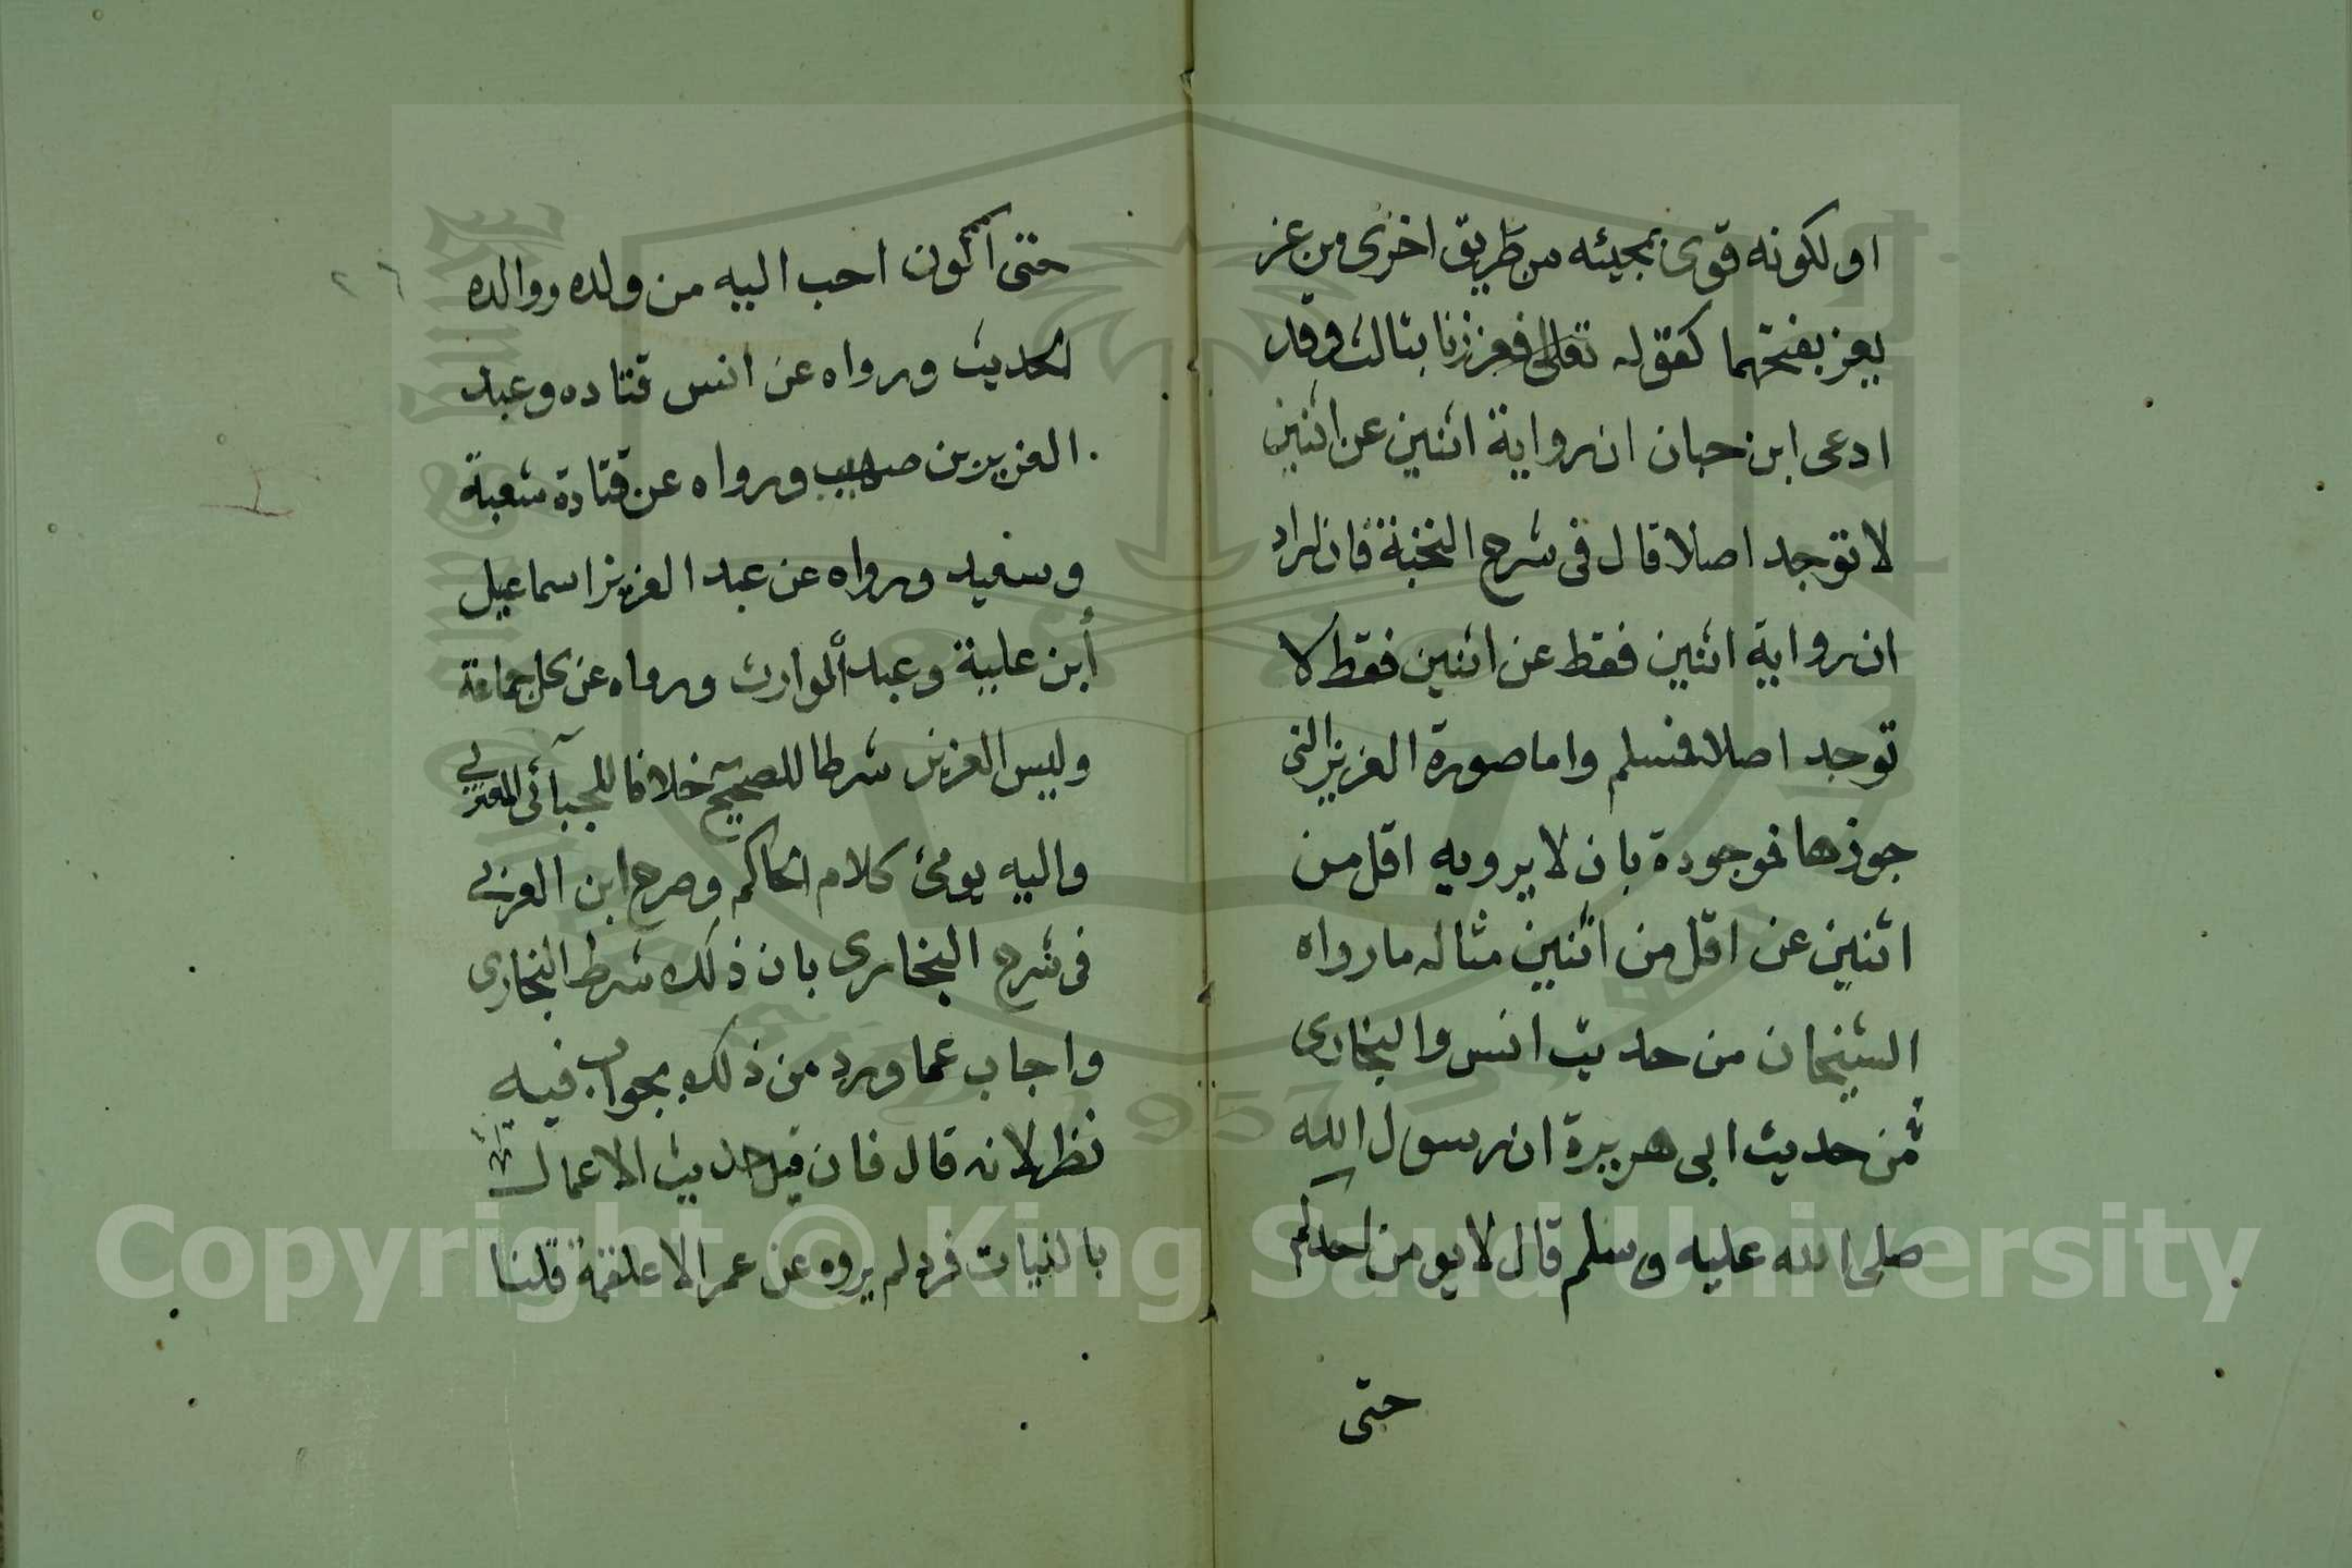 او لكونه قوى بمجيئه من طريق اخرى من عز
يعز بفتحهما كقوله تعالى فعززنا بثالث وقد
ادعى ابن حبان ان رواية اثنين عن اثنين
لا توجد اصلا قال فى شرح النخبة فان اراد
ان رواية اثنين فقط عن اثنين فقط لا
توجد اصلا فسلم واما صورة العزيز التى
جوزها فموجودة بان لا يرويه اقل من
اثنين عن اقل من اثنين مثاله ما رواه
الشيخان من حديث انس والبخارى
من حديث ابى هريرة ان رسول الله
صلى الله عليه وسلم قال لا يومن احدكم
حتى
٢٦
حتى اكون احب اليه من ولده ووالده
الحديث ورواه عن انس قتاده وعبد
العزيز بن صهيب ورواه عن قتادة شعبة
وسعيد ورواه عن عبد العزيز اسماعيل
ابن علية وعبد الوارث ورواه عن كل جماعة
وليس العزيز شرطا للصحيح خلافا للجبآئى المعتزلى
واليه يومئ كلام الحاكم وصرح ابن العربى
فى شرح البخارى بان ذلك شرط البخارى
واجاب عما ورد من ذلك بجواب فيه
نظر لانه قال فان قيل حديث الاعمال
بالنيات فرد لم يروه عن عمر الا علقمة قلنا
Copyright © King Saud University
1957